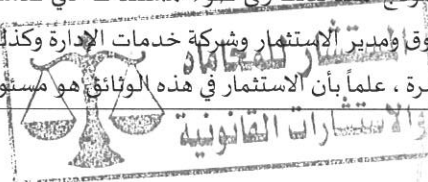 وق ومدير الاستثمار وشركة خدمات الإدارة وكذلك
المستشار للمحاماه
رة ، علماً بأن الاستثمار في هذه الوثائق هو مسئو
والاستشارات القانونية